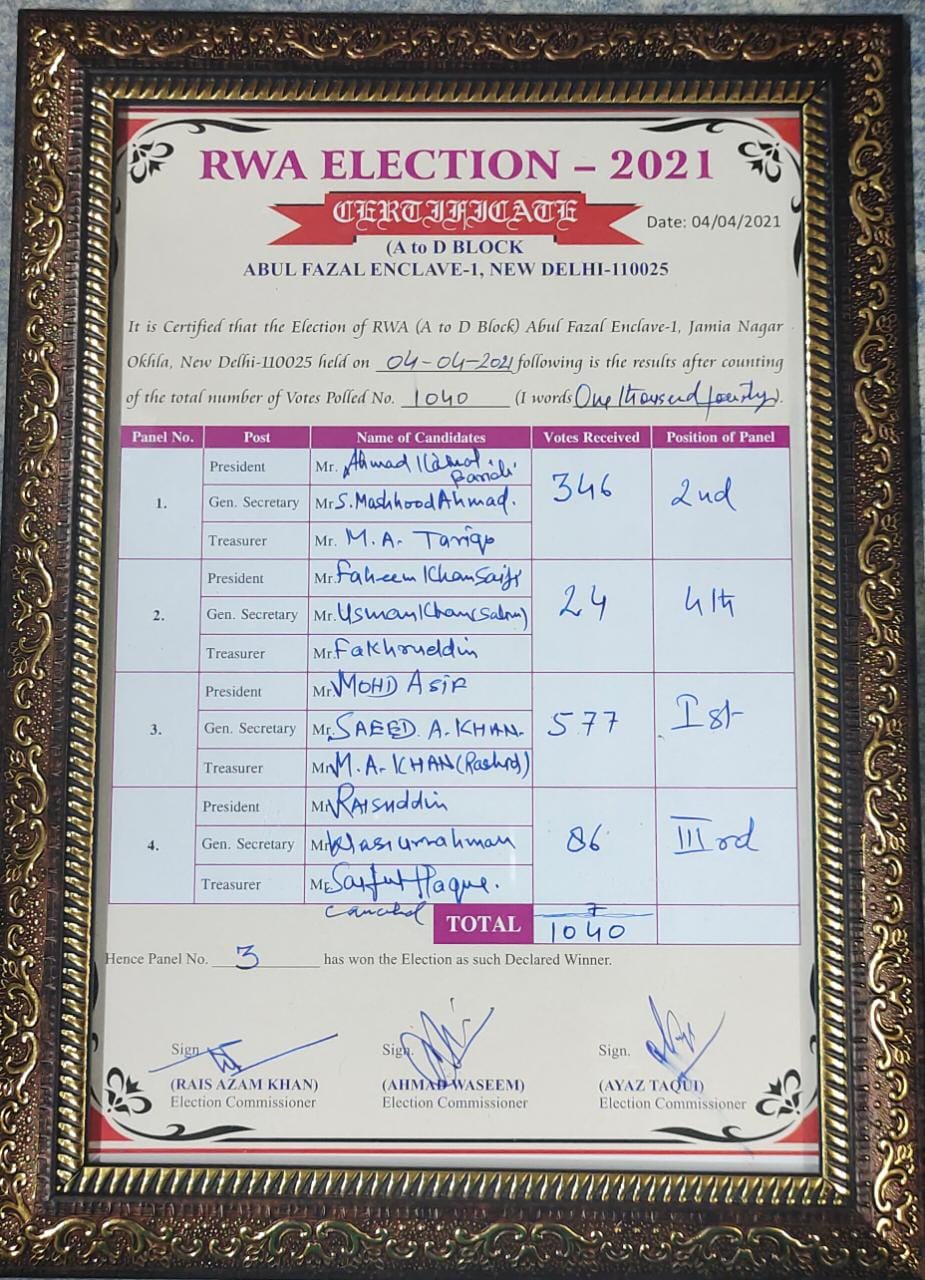 RWA ELECTION – 2021
CERTIFICATE
Date: 04/04/2021
(A to D BLOCK
ABUL FAZAL ENCLAVE-1, NEW DELHI-110025
It is Certified that the Election of RWA (A to D Block) Abul Fazal Enclave-1, Jamia Nagar
Okhla, New Delhi-110025 held on 04-04-2021 following is the results after counting
of the total number of Votes Polled No. 1040 (I words One thousand fourty).
Panel No. Post Name of Candidates Votes Received Position of Panel
1. 346 2nd
President Mr. Ahmad Kamal
Gen. Secretary Mr S. Mashhood Ahmad.
Treasurer Mr. M.A. Tariqe
2. 24 4th
President Mr. Faheem Khan Saifi
Gen. Secretary Mr. Usman Khan (Salim)
Treasurer Mr. Fakhruddin
3. 577 Ist
President Mr. MOHD ASIF
Gen. Secretary Mr. SAEED. A. KHAN.
Treasurer Mr. M.A. KHAN (Rashid)
4. 86 IIIrd
President Mr. Raisuddin
Gen. Secretary Mr.
Treasurer Mr. Saiful Haque.
Canceled 7
TOTAL 1040
Hence Panel No. 3 has won the Election as such Declared Winner.
Sign. Sign. Sign.
(RAIS AZAM KHAN) (AHMAD WASEEM) (AYAZ TAQUI)
Election Commissioner Election Commissioner Election Commissioner